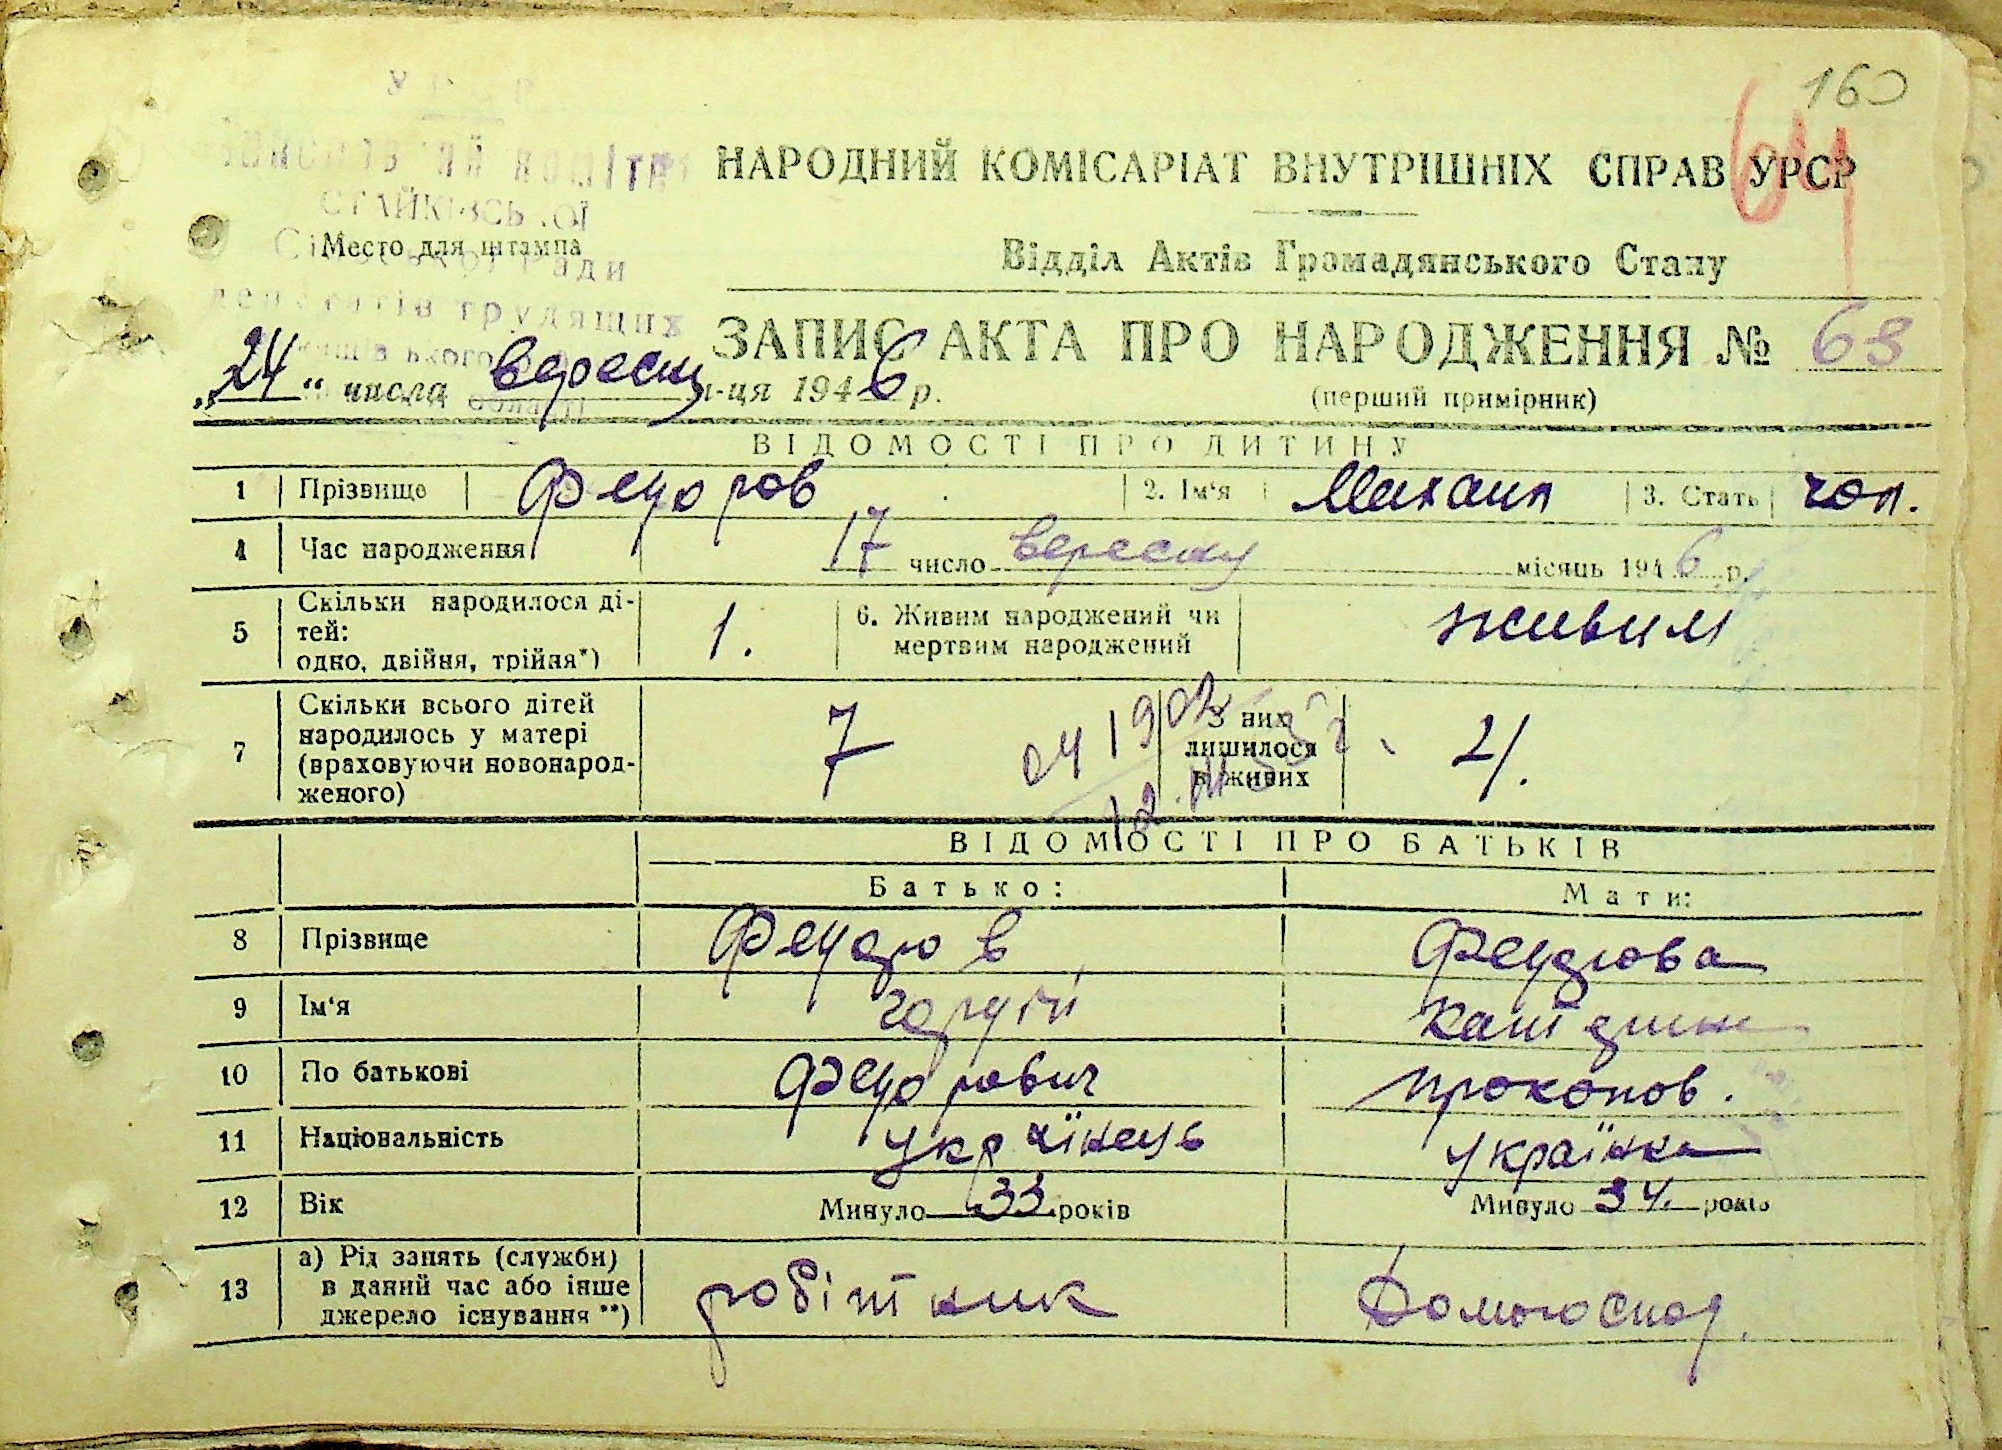 160
64
НАРОДНИЙ КОМІСАРІАТ ВНУТРІШНІХ СПРАВ УРСР
СТАЙКІВСЬКОЇ
Место для штампа
Ради
Відділ Актів Громадянського Стану
депутатів трудящих
ЗАПИС АКТА ПРО НАРОДЖЕННЯ № 63
„24“ числа вересня м-ця 1946 р.
(перший примірник)
ВІДОМОСТІ ПРО ДИТИНУ
1 Прізвище Федоров 2. Ім‘я Михаил 3. Стать чол.
4 Час народження 17 число вересня місяць 1946 р.
5 Скільки народилося ді-
тей:
одно, двійня, трійня*) 1. 6. Живим народжений чи
мертвим народжений живим
7 Скільки всього дітей
народилось у матері
(враховуючи новонарод-
женого) 7 З них
лишилося
в живих 4.
ВІДОМОСТІ ПРО БАТЬКІВ
Батько: Мати:
8 Прізвище Федоров Федорова
9 Ім‘я
10 По батькові Федорович Прокопов.
11 Національність українець українка
12 Вік Минуло 33 років Минуло 34. років
13 а) Рід занять (служби)
в даний час або інше
джерело існування **) робітник Домогоспод.